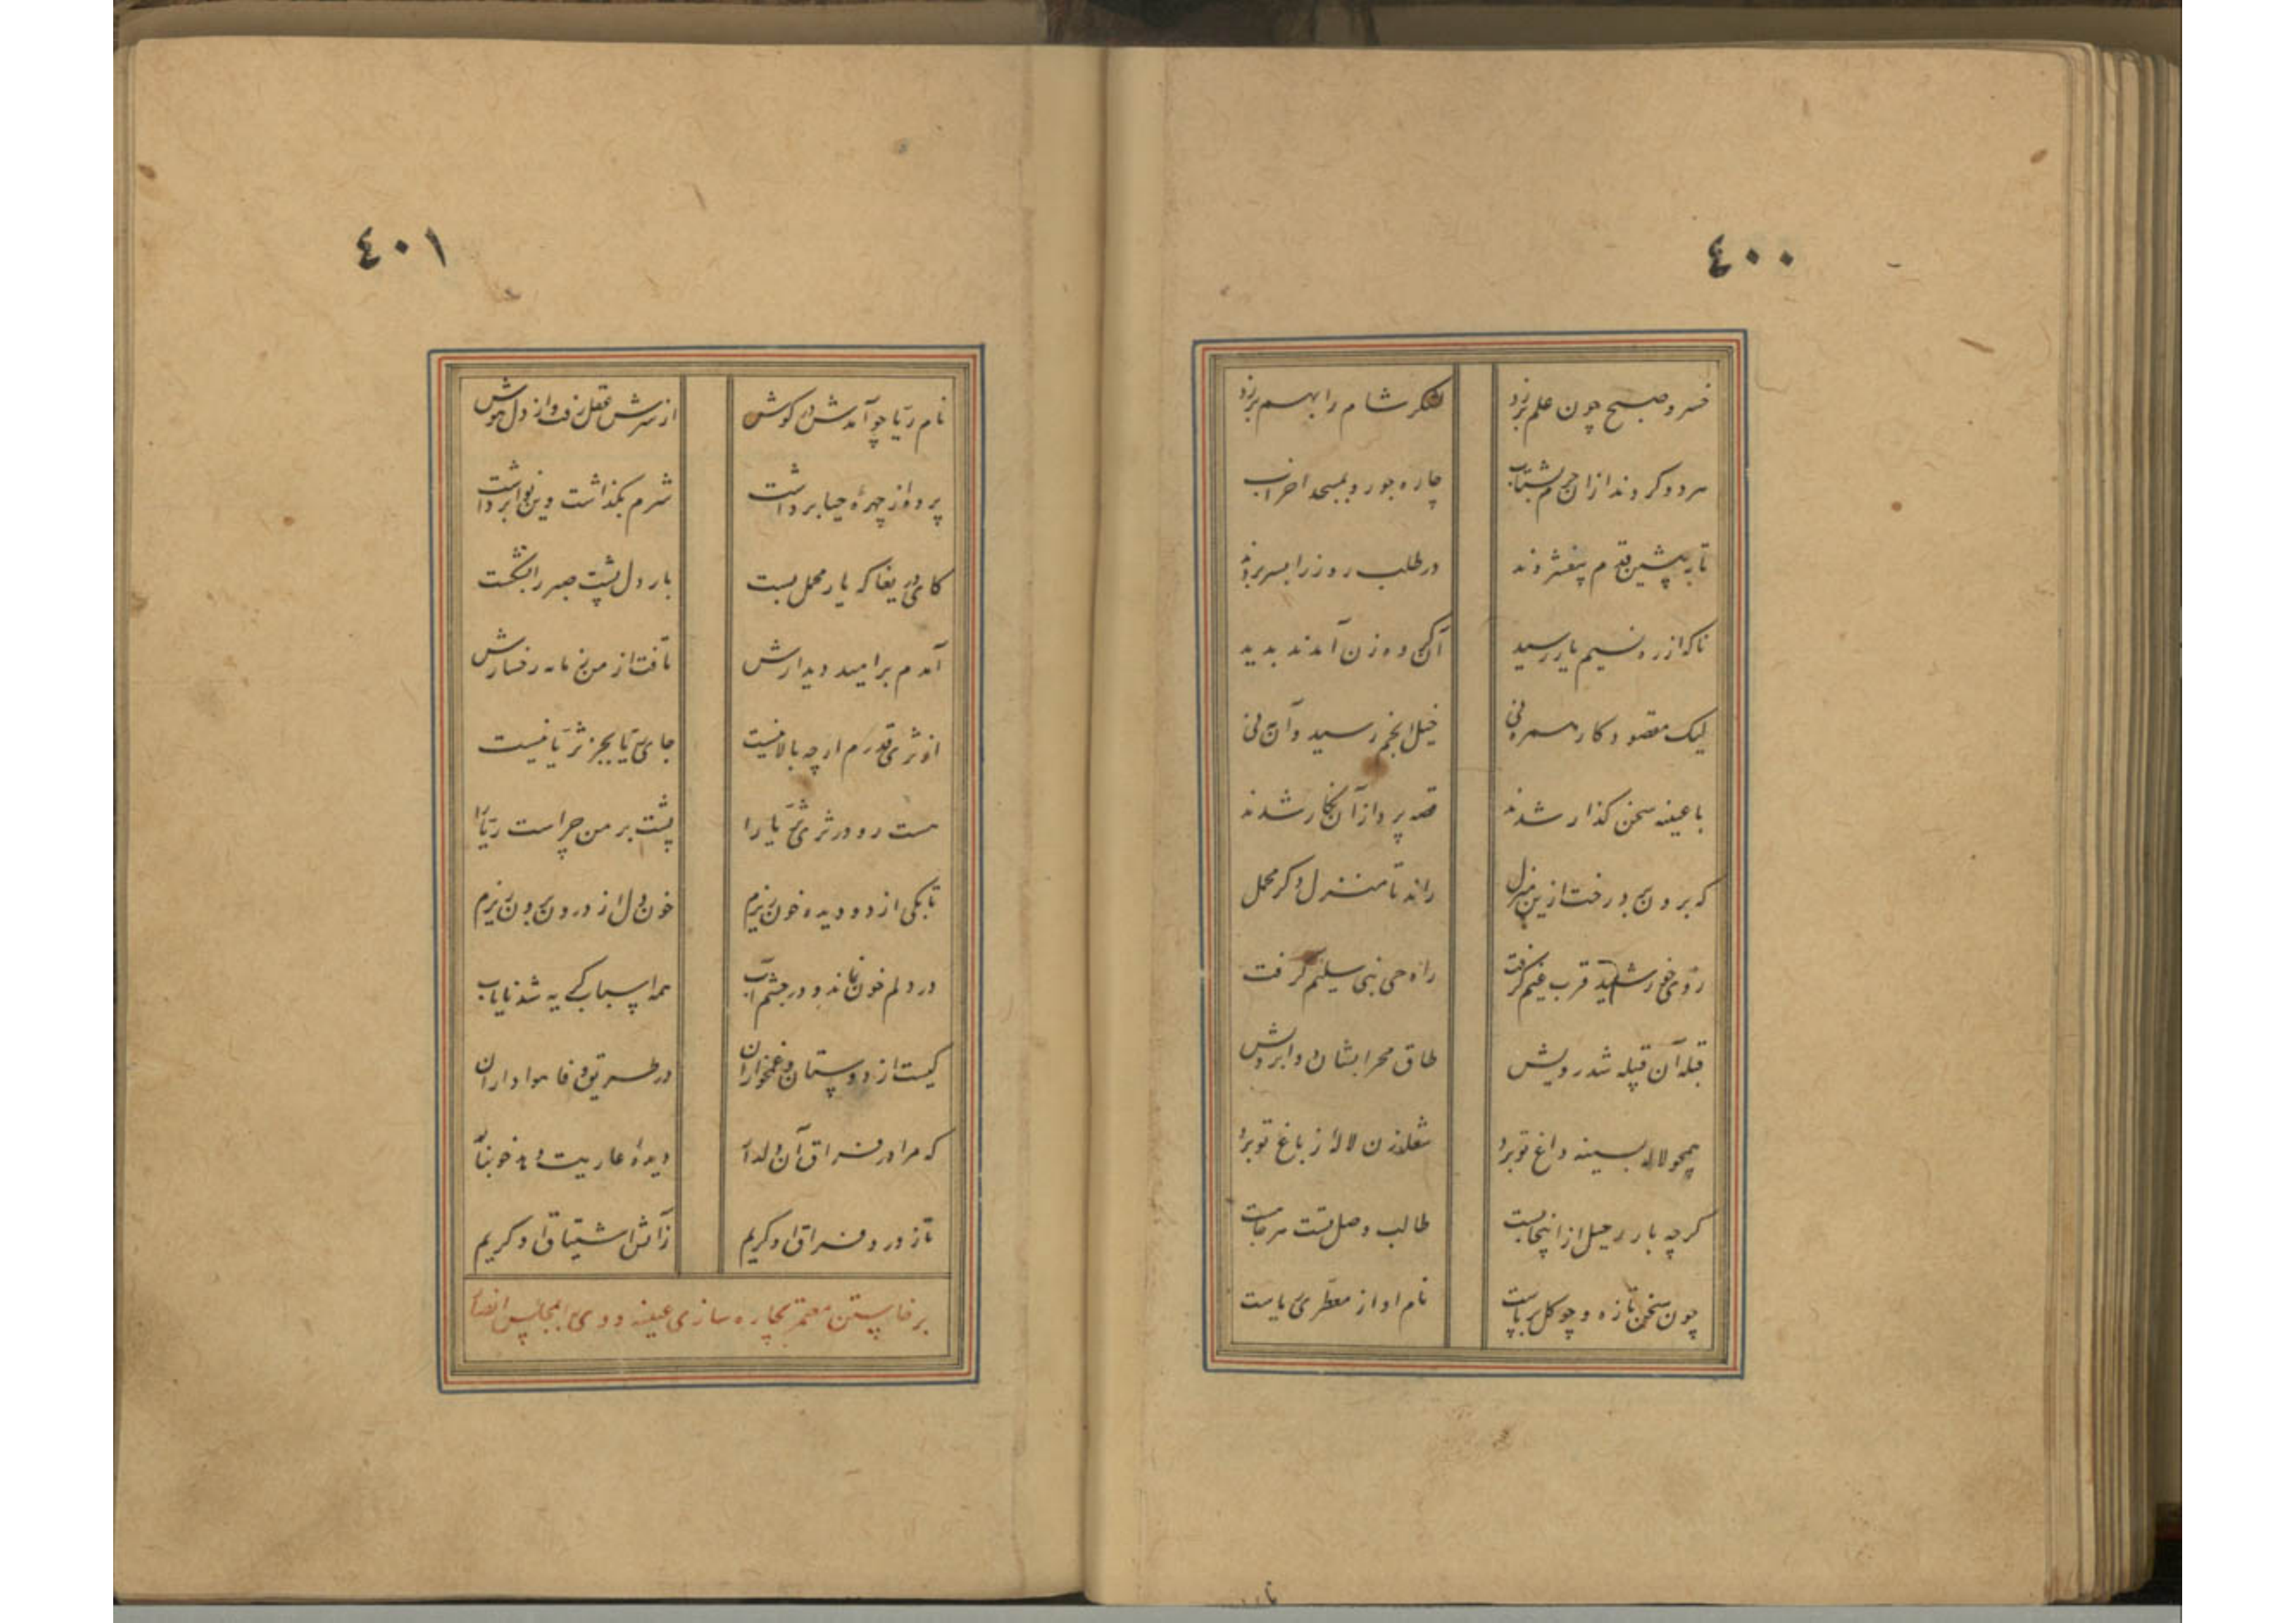 ٤٠٠
خسرو صبح چون علم برزد
لشکر شام را بهم برزد
هر دو کردند ازان حرم بشتاب
چاره جو رو بمسجد احزاب
تا به پیشین قدم بیفشردند
در طلب روز را بسر بردند
ناکه از ره نسیم یار رسید
آن کروه زن آمدند بدید
لیک مقصود کار همره نی
خیل انجم رسید و آن مه نی
با عیینه سخن کذار شدند
قصه پرداز آن نکار شدند
که برون برد رخت ازین منزل
راند تا منزل دکر محمل
روی خورشید قرب غیم کرفت
راه حی بنی سلیم کرفت
قبله آن قبیله شد رویش
طاق محرابشان دو ابرویش
همچو لاله بسینه داغ تو برد
شعله زن لاله‌ٔ ز باغ تو برد
کرچه بار رحیل ازاینجا بست
طالب وصل تست هر جا هست
چون سخن تازه و چو کل بویاست
نام او از معطری ریاست
٤٠١
نام ریا چو آمدش در کوش
از سرش عقل رفت و از دل هوش
پرده از چهرهٔ حیا برداشت
شرم بکذاشت وین نوا برداشت
کای دریغا که یار محمل بست
بار دل پشت صبر را بشکست
آمدم بر امید دیدارش
تافت از من زمانه رخسارش
از ثری قدرم ار چه بالا نیست
جای ریا بجز ثریا نیست
هست رو در ثری ثریا را
پشت بر من چراست ریا را
تا بکی از دو دیده خون ریزم
خون دل از درون برون ریزم
در دلم خون نماند و در چشم آب
همه اسباب کریه شد نایاب
کیست از دوستان و غمخواران
در طریق وفا هواداران
که مرا در فراق آن دلدار
دیدهٔ عاریت دهد خونبار
تا ز درد فراق او کریم
ز آتش اشتیاق او کریم
برخاستن معتمر بچاره سازی عیینه و وی را بمجالس انصار